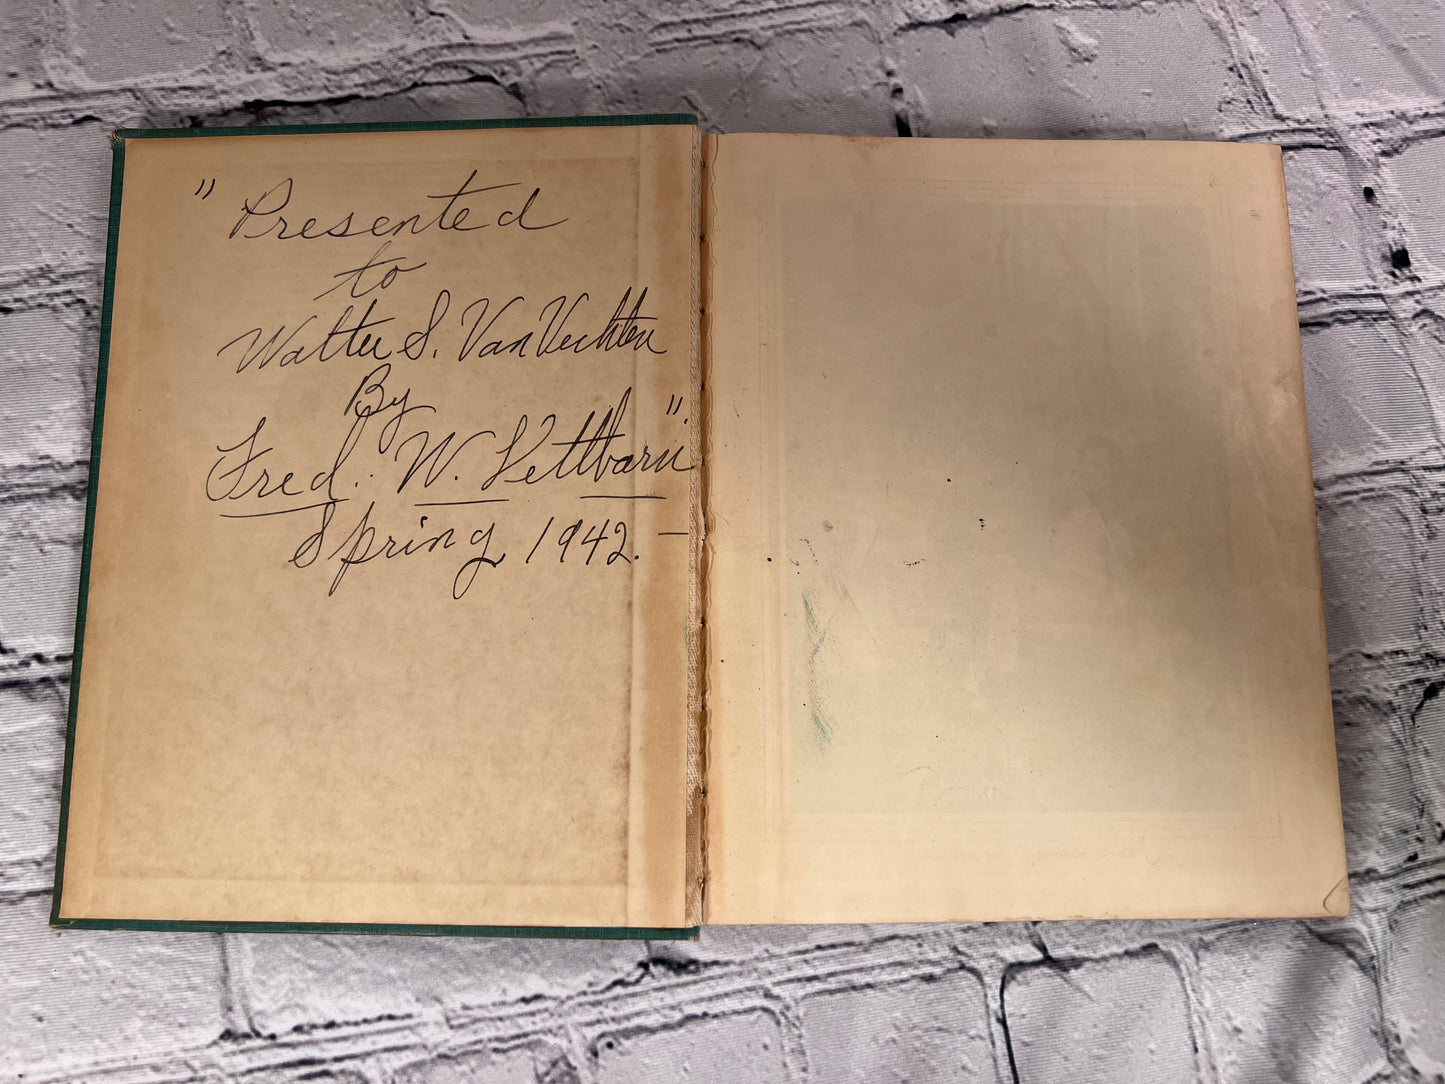 " Presented
to
Walter S. Van Vechten
By
Fred. W.
Spring 1942. —